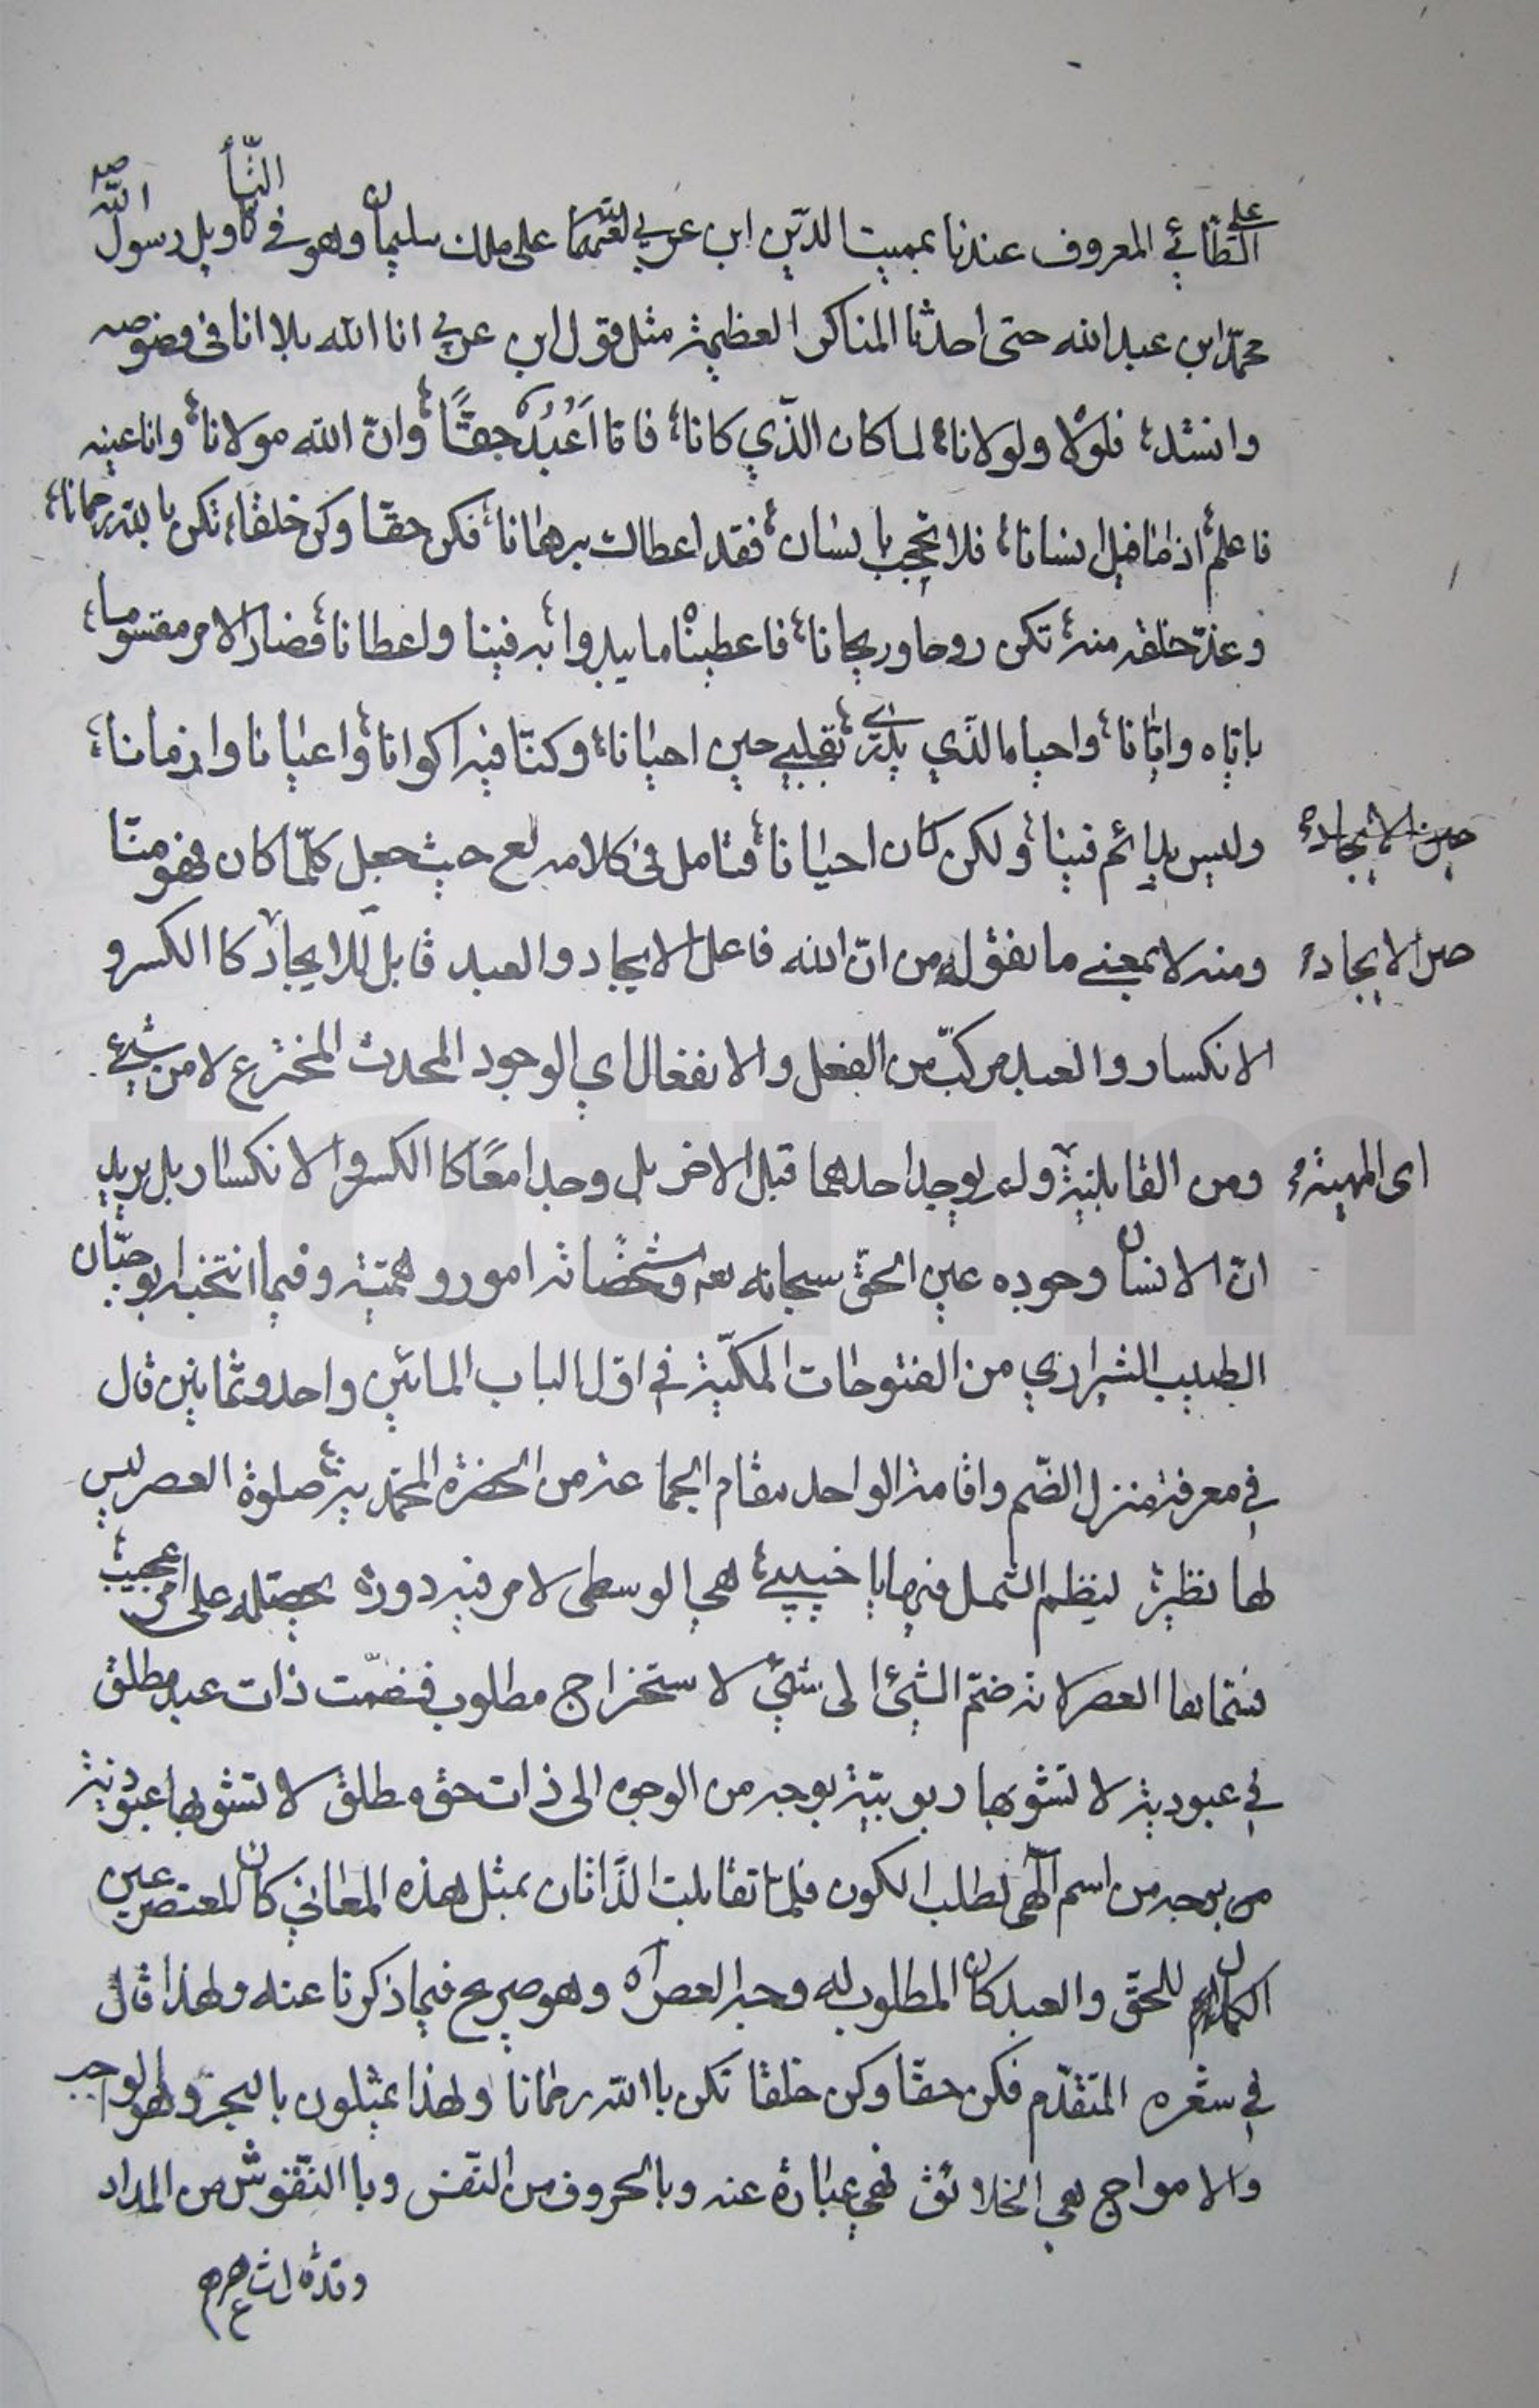 الطائي المعروف عندنا بمميت الدين ابن عربي على ملك سليمان وهو في تاويل رسول الله ص
محمد ابن عبد الله حتى احدثا المناكر العظيمة مثل قول ابن عربي انا الله بلا انا في فصوصه
وانشد فلولا ولولانا لما كان الذي كانا فانا اَعْبُدُ حقًّا وانّ الله مولانا وانا عينه
فاعلم اذا ما قيل انسانا فلا تحجب بانسان فقد اعطاك برهانا فكن حقّا وكن خلقا تكن بالله رحمانا
وغذّ خلقه منه تكن روحا وريحانا فاعطيناه ما يبدوا به فينا واعطانا فصار الامر مقسوما
باياه وايانا واحياه الذي يدري بقلبي حين احيانا وكنّا فيه اكوانا واعيانا وازمانا
وليس بدائم فينا ولكن كان احيانا فتامل في كلامه لع حيث جعل كلّما كان فهو منّا
حين الايجاد
ومنه لا بمعنى ما نقوله من انّ الله فاعل الايجاد والعبد قابل للايجاد كا الكسر و
حين الايجاد
الانكسار والعبد مركبّ من الفعل والانفعال اي الوجود المحدث المخترع لا من شيئ
ومن القابلية ولم يوجد احدهما قبل الاخر بل وجدا معًا كا الكسر والانكسار بل يريد
اى المهية
انّ الانسان وجوده عين الحقّ سبحانه وتشخّصاته امور وهميّة وفيما انتخبه ابو حيّان
الطبيب الشيرازي من الفتوحات المكيّة في اوّل الباب المائتين واحد وثمانين قال
في معرفة منزل الضّم واقامة الواحد مقام الجماعة من الحضرة المحمّدية صلوة العصر ليس
لها نظير لينظم الشمل فيها يا حبيبي هي الوسطى لامر فيه دورة محصّله على امر عجيب
فسمّاها العصر لانه ضمّ الشيئ الى شيئ لاستخراج مطلوب فضمّت ذات عبد مطلق
في عبودية لا تشوبها ربوبيّة بوجه من الوجوه الى ذات حق مطلق لا تشوبها عبودية
من بوجه من اسم الهى لطلب الكون فلما تقابلت الذاتان بمثل هذه المعاني كان المعتصر عين
الكمال للحقّ والعبد كان المطلوب له وجد العصر اه وهو صريح فيما ذكرنا عنه ولهذا قال
في شعره المتقدّم فكن حقّا وكن خلقا تكن باالله رحمانا ولهذا يمثلون بالبحر وهو الواجب
والامواج هي الخلائق فهي عبارة عنه وبالحروف من النّفس وباالنّقوش من المداد